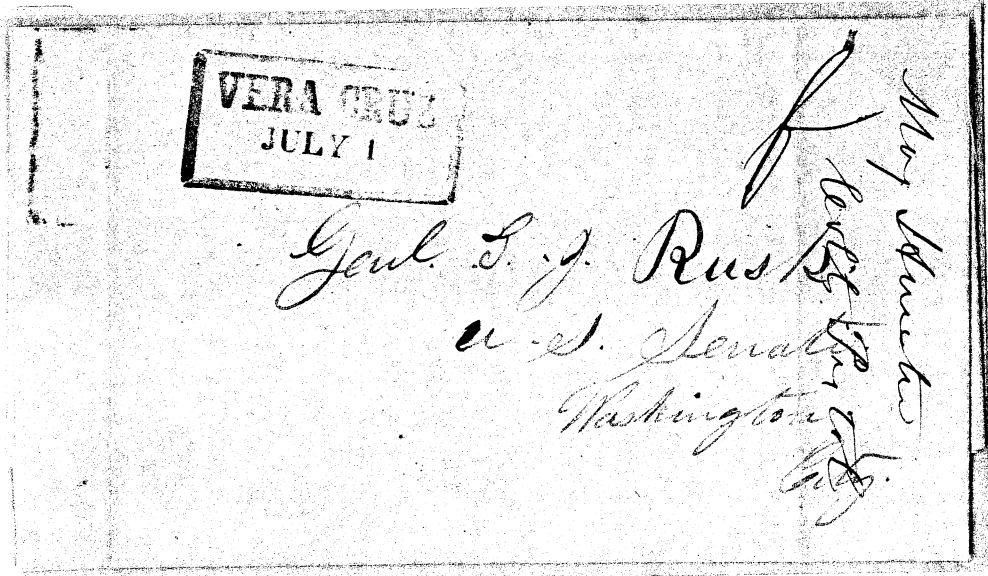 VERA CRUZ
JULY 1
Genl. T. J. Rusk
U. S. Senate
Washington
City.
Maj Hunter